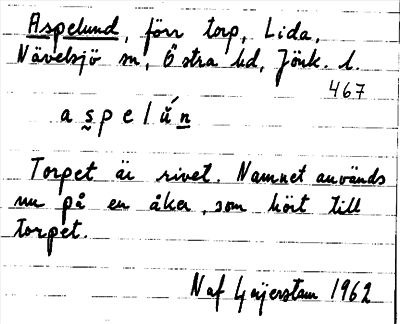 Aspelund, förr torp, Lida,
Nävelsjö sn, Östra hd, Jönk. l.
467
a s̰ p e l ú n̲
Torpet är rivet. Namnet används
nu på en åker, som hört till
torpet.
Naf Geijerstam 1962